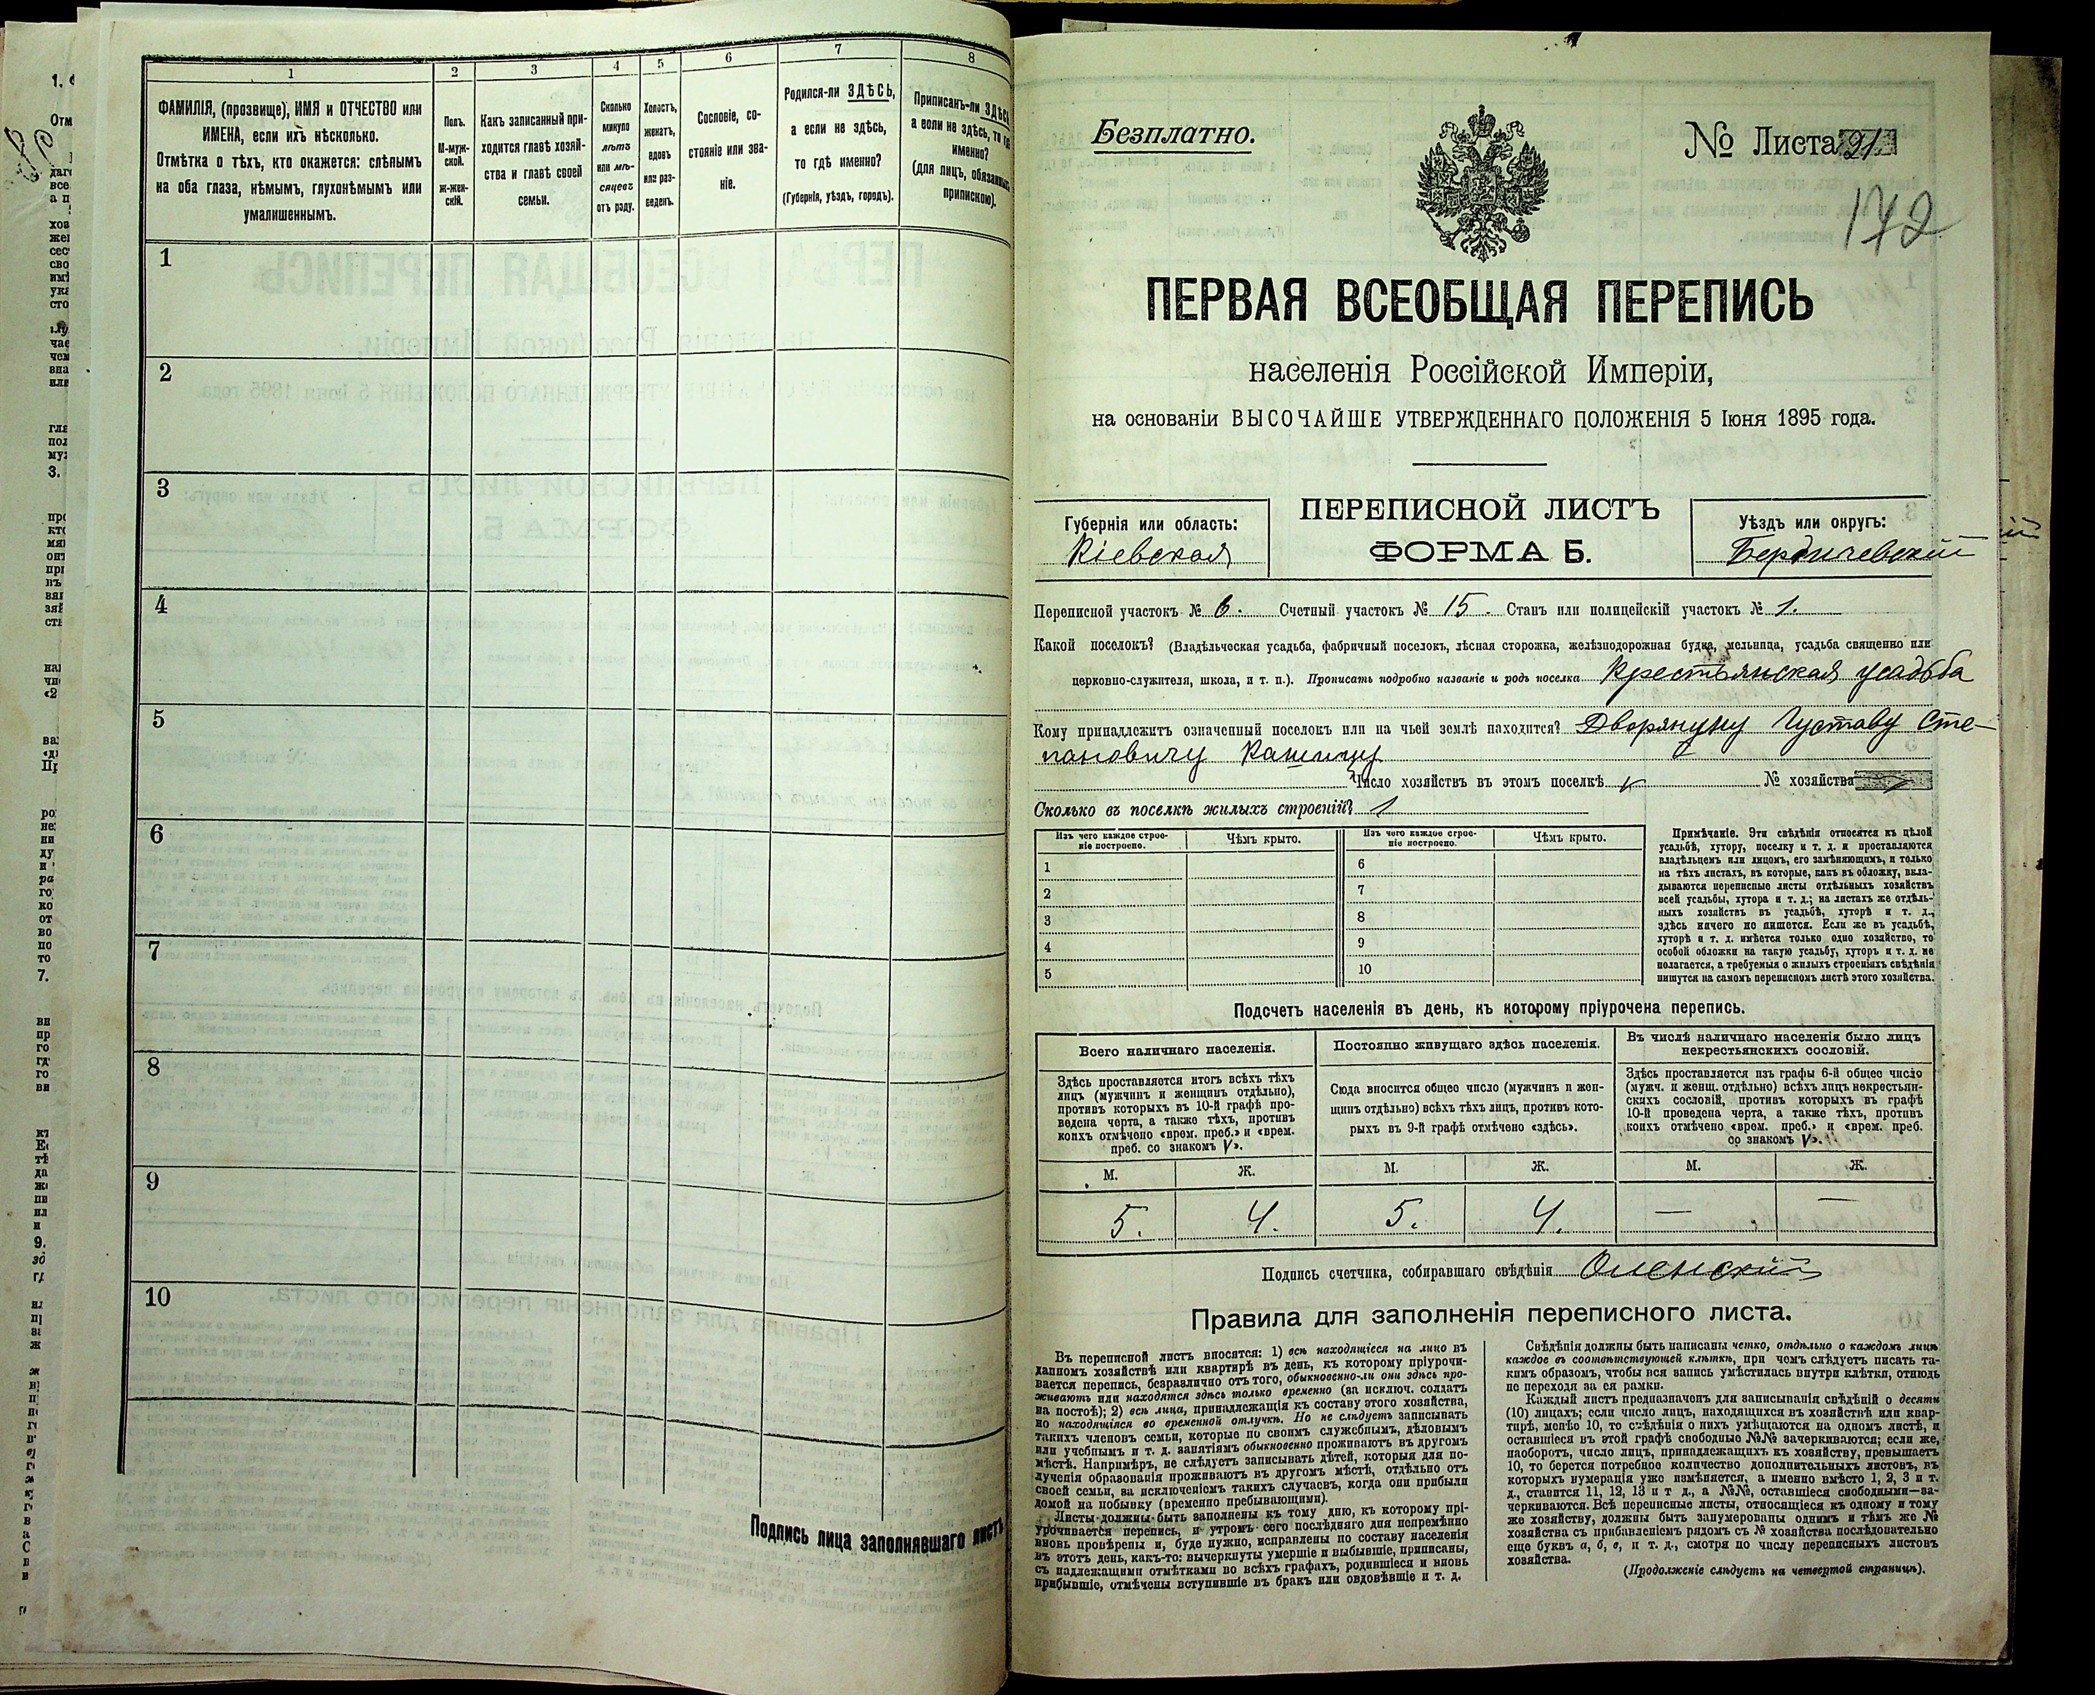 1
2
3
4
5
6
7
8
ФАМИЛІЯ, (прозвище), ИМЯ и ОТЧЕСТВО или
ИМЕНА, если ихъ нѣсколько.
Отмѣтка о тѣхъ, кто окажется: слѣпымъ
на оба глаза, нѣмымъ, глухонѣмымъ или
умалишеннымъ.
Полъ.
М-муж-
ской.
ж-жен-
скій.
Какъ записанный при-
ходится главѣ хозяй-
ства и главѣ своей
семьи.
Сколько
минуло
лѣтъ
или мѣ-
сяцевъ
отъ роду.
Холостъ,
женатъ,
вдовъ
или раз-
веденъ.
Сословіе, со-
стояніе или зва-
ніе.
Родился-ли ЗДѢСЬ,
а если не здѣсь,
то гдѣ именно?
(Губернія, уѣздъ, городъ).
Приписанъ-ли ЗДѢСЬ
а если не здѣсь, то гдѣ
именно?
(для лицъ, обязанныхъ
припискою).
1
2
3
4
5
6
7
8
9
10
Подпись лица заполнявшаго листъ
Безплатно.
№ Листа 21
172
ПЕРВАЯ ВСЕОБЩАЯ ПЕРЕПИСЬ
населенія Россійской Имперіи,
на основаніи ВЫСОЧАЙШЕ УТВЕРЖДЕННАГО ПОЛОЖЕНІЯ 5 Іюня 1895 года.
Губернія или область:
Кіевская
ПЕРЕПИСНОЙ ЛИСТЪ
ФОРМА Б.
Уѣздъ или округъ:
Бердичевскій
Переписной участокъ № 6. Счетный участокъ № 15. Станъ или полицейскій участокъ № 1.
Какой поселокъ? (Владѣльческая усадьба, фабричный поселокъ, лѣсная сторожка, желѣзнодорожная будка, мельница, усадьба священно или
церковно-служителя, школа, и т. п.). Прописать подробно названіе и родъ поселка Крестьянская усадьба
Кому принадлежитъ означенный поселокъ или на чьей землѣ находится? Дворянину Густаву Сте-
пановичу
Число хозяйствъ въ этомъ поселкѣ № хозяйства
Сколько въ поселкѣ жилыхъ строеній? 1
Изъ чего каждое строе-
ніе построено.
Чѣмъ крыто.
Изъ чего каждое строе-
ніе построено.
Чѣмъ крыто.
1
2
3
4
5
6
7
8
9
10
Примѣчаніе. Эти свѣдѣнія относятся къ цѣлой
усадьбѣ, хутору, поселку и т. д. и проставляются
владѣльцемъ или лицомъ, его замѣняющимъ, и только
на тѣхъ листахъ, въ которые, какъ въ обложку, вкла-
дываются переписные листы отдѣльныхъ хозяйствъ
всей усадьбы, хутора и т. д.; на листахъ же отдѣль-
ныхъ хозяйствъ въ усадьбѣ, хуторѣ и т. д.,
здѣсь ничего не пишется. Если же въ усадьбѣ,
хуторѣ и т. д. имѣется только одно хозяйство, то
особой обложки на такую усадьбу, хуторъ и т. д. не
полагается, а требуемыя о жилыхъ строеніяхъ свѣдѣнія
пишутся на самомъ переписномъ листѣ этого хозяйства.
Подсчетъ населенія въ день, къ которому пріурочена перепись.
Всего наличнаго населенія.
Постоянно живущаго здѣсь населенія.
Въ числѣ наличнаго населенія было лицъ
некрестьянскихъ сословій.
Здѣсь проставляется итогъ всѣхъ тѣхъ
лицъ (мужчинъ и женщинъ отдѣльно),
противъ которыхъ въ 10-й графѣ про-
ведена черта, а также тѣхъ, противъ
коихъ отмѣчено «врем. преб.» и «врем.
преб. со знакомъ V».
Сюда вносится общее число (мужчинъ и жен-
щинъ отдѣльно) всѣхъ тѣхъ лицъ, противъ кото-
рыхъ въ 9-й графѣ отмѣчено «здѣсь».
Здѣсь проставляется изъ графы 6-й общее число
(мужч. и женщ. отдѣльно) всѣхъ лицъ некрестьян-
скихъ сословій, противъ которыхъ въ графѣ
10-й проведена черта, а также тѣхъ, противъ
коихъ отмѣчено «врем. преб.» и «врем. преб.
со знакомъ V».
М. Ж. М. Ж. М. Ж.
5. 4. 5. 4. — —
Подпись счетчика, собиравшаго свѣдѣнія Оленскій
Правила для заполненія переписного листа.
Въ переписной листъ вносятся: 1) всѣ находящіеся на лицо въ
данномъ хозяйствѣ или квартирѣ въ день, къ которому пріурочи-
вается перепись, безразлично отъ того, обыкновенно-ли они здѣсь про-
живаютъ или находятся здѣсь только временно (за исключ. солдатъ
на постоѣ); 2) всѣ лица, принадлежащія къ составу этого хозяйства,
но находящіяся во временной отлучкѣ. Но не слѣдуетъ записывать
такихъ членовъ семьи, которые по своимъ служебнымъ, дѣловымъ
или учебнымъ и т. д. занятіямъ обыкновенно проживаютъ въ другомъ
мѣстѣ. Напримѣръ, не слѣдуетъ записывать дѣтей, которыя для по-
лученія образованія проживаютъ въ другомъ мѣстѣ, отдѣльно отъ
своей семьи, за исключеніемъ такихъ случаевъ, когда они прибыли
домой на побывку (временно пребывающими).
Листы должны быть заполнены къ тому дню, къ которому прі-
урочивается перепись, и утромъ сего послѣдняго дня непремѣнно
вновь провѣрены и, буде нужно, исправлены по составу населенія
въ этотъ день, какъ-то: вычеркнуты умершіе и выбывшіе, приписаны,
съ надлежащими отмѣтками во всѣхъ графахъ, родившіеся и вновь
прибывшіе, отмѣчены вступившіе въ бракъ или овдовѣвшіе и т. д.
Свѣдѣнія должны быть написаны четко, отдѣльно о каждомъ лицѣ
каждое въ соотвѣтствующей клѣткѣ, при чемъ слѣдуетъ писать та-
кимъ образомъ, чтобы вся запись умѣстилась внутри клѣтки, отнюдь
не переходя за ея рамки.
Каждый листъ предназначенъ для записыванія свѣдѣній о десяти
(10) лицахъ; если число лицъ, находящихся въ хозяйствѣ или квар-
тирѣ, менѣе 10, то свѣдѣнія о нихъ умѣщаются на одномъ листѣ, и
оставшіеся въ этой графѣ свободные №№ зачеркиваются; если же,
наоборотъ, число лицъ, принадлежащихъ къ хозяйству, превышаетъ
10, то берется потребное количество дополнительныхъ листовъ, въ
которыхъ нумерація уже измѣняется, а именно вмѣсто 1, 2, 3 и т.
д., ставится 11, 12, 13 и т д., а №№, оставшіеся свободными—за-
черкиваются. Всѣ переписные листы, относящіеся къ одному и тому
же хозяйству, должны быть занумерованы однимъ и тѣмъ же №
хозяйства съ прибавленіемъ рядомъ съ № хозяйства послѣдовательно
еще буквъ а, б, в, и т. д., смотря по числу переписныхъ листовъ
хозяйства.
(Продолженіе слѣдуетъ на четвертой страницѣ).